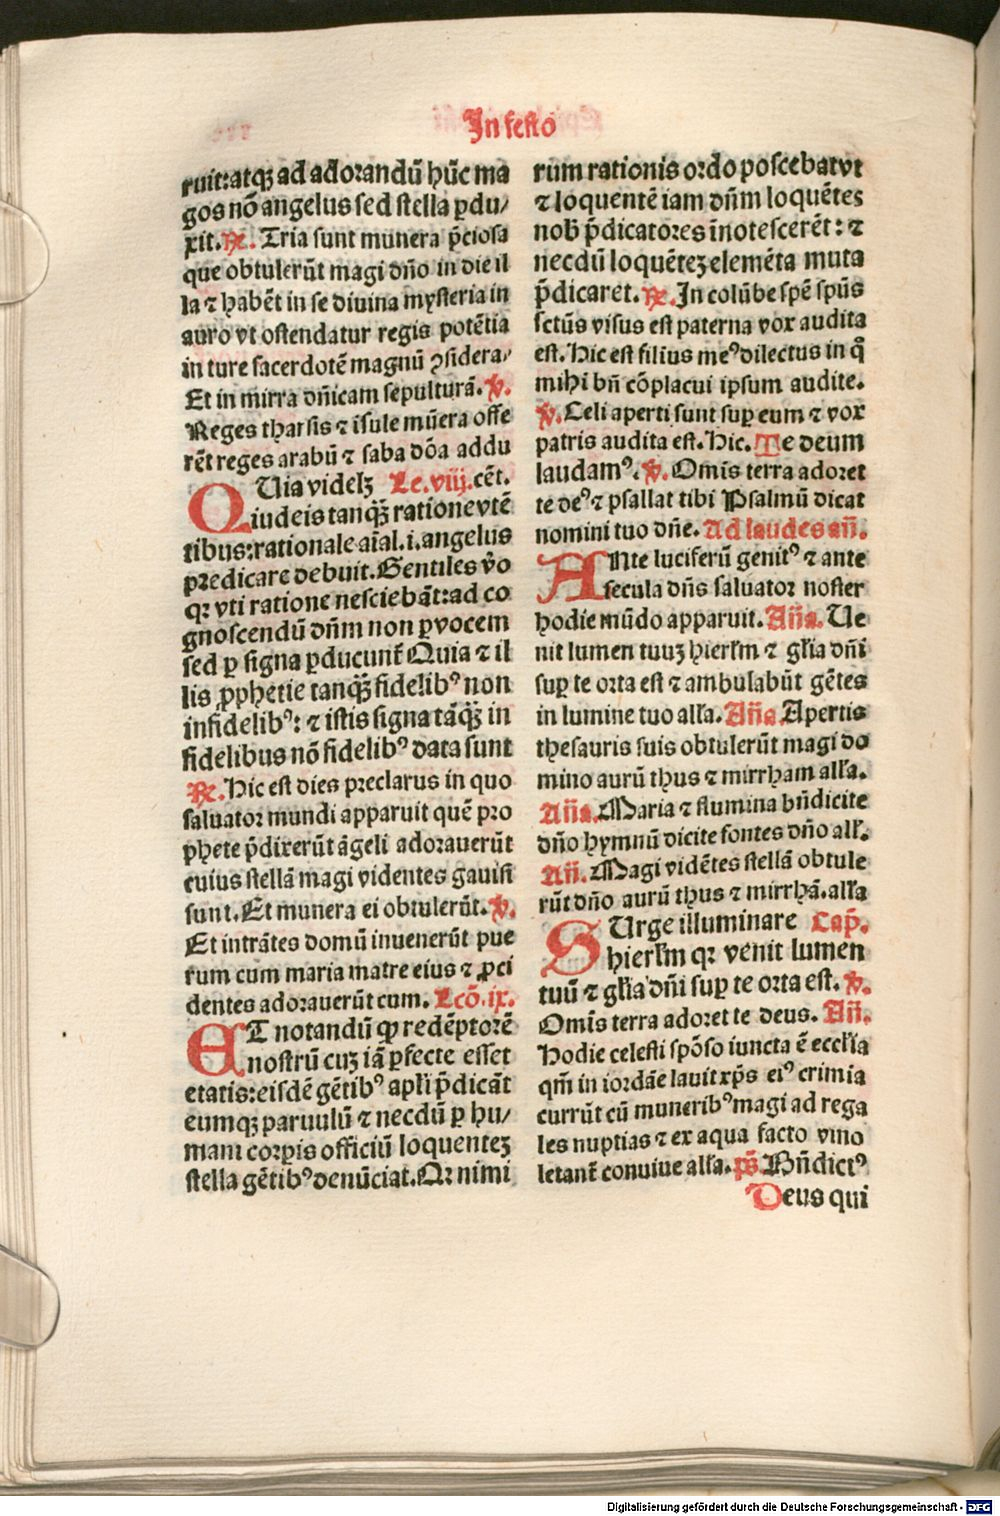 In festo
ruit:atqꝫ ad adorandū hūc ma
gos nō angelus sed stella ꝑdu/
xit. ℞. Tria sunt munera p̄ciosa
que obtulerūt magi dn̄o in die il
la ⁊ habēt in se diuina mysteria in
auro vt ostendatur regis potētia
in ture sacerdotē magnū ꝯsidera/
Et in mirra dn̄icam sepulturā. ℣.
Reges tharsis ⁊ isule mūera offe
rēt reges arabū ⁊ saba dōa addu
QUia videlꝫ Le.viij. cēt.
iudeis tanqꝫ̄ ratione vtē
tibus:rationale aīal.i.angelus
predicare debuit. Gentiles v̄o
qꝛ vti ratione nesciebāt:ad co
gnoscendū dn̄m non ꝑ vocem
sed ꝑ signa ꝑducunt̄ Quia ⁊ il
lis ꝓphetie tanqꝫ̄ fidelibꝰ non
infidelibꝰ: ⁊ istis signa tāqꝫ̄ in
fidelibus nō fidelibꝰ data sunt
℞. Hic est dies preclarus in quo
saluator mundi apparuit quē pro
phete p̄dixerūt āgeli adorauerūt
cuius stellā magi videntes gauisi
sunt. Et munera ei obtulerūt. ℣.
Et intrātes domū inuenerūt pue
rum cum maria matre eius ⁊ ꝓci
dentes adorauerūt eum. Lcō.ix.
ET notandū ꝙ redēptorē
nostrū cuꝫ iā ꝑfecte esset
etatis:eisdē gētibꝰ apl̄i p̄dicāt
eumqꝫ paruulū ⁊ necdū ꝑ hu/
mani corꝑis officiū loquenteꝫ
stella gētibꝰ denūciat. Qꝛ nimi
rum rationis ordo poscebat vt
⁊ loquentē iam dn̄m loquētes
nob̄ p̄dicatores īnotescerēt: ⁊
necdū loquēteꝫ elemēta muta
p̄dicaret. ℞. In colūbe spē spūs
sctūs visus est paterna vox audita
est. Hic est filius meꝰ dilectus in q̄
mihi bn̄ cōplacui ipsum audite.
℣. Celi aperti sunt suꝑ eum ⁊ vox
patris audita est. Hic. Te deum
laudamꝰ. ℣. Omīs terra adoret
te deꝰ ⁊ psallat tibi Psalmū dicat
nomini tuo dn̄e. Ad laudes an̄.
ANte luciferū genitꝰ ⁊ ante
secula dn̄s saluator noster
hodie mūdo apparuit. An̄a. Ue
nit lumen tuuꝫ hierl̄m ⁊ gl̄ia dn̄i
suꝑ te orta est ⁊ ambulabūt gētes
in lumine tuo all̄a. An̄a Apertis
thesauris suis obtulerūt magi do
mino aurū thus ⁊ mirrham all̄a.
An̄a. Maria ⁊ flumina bn̄dicite
dn̄o hymnū dicite fontes dn̄o all̄.
An̄. Magi vidētes stellā obtule
rūt dn̄o aurū thus ⁊ mirrhā. all̄a
SUrge illuminare Cap̄.
hierl̄m qꝛ venit lumen
tuū ⁊ gl̄ia dn̄i suꝑ te orta est. ℣.
Omīs terra adoret te deus. An̄.
Hodie celesti spōso iuncta ē eccl̄ia
qm̄ in iordāe lauit xp̄s eiꝰ crimīa
currūt cū muneribꝰ magi ad rega
les nuptias ⁊ ex aqua facto vino
letant̄ conuiue all̄a. p̄s̄ Bn̄dictꝰ
Deus qui
Digitalisierung gefördert durch die Deutsche Forschungsgemeinschaft - DFG